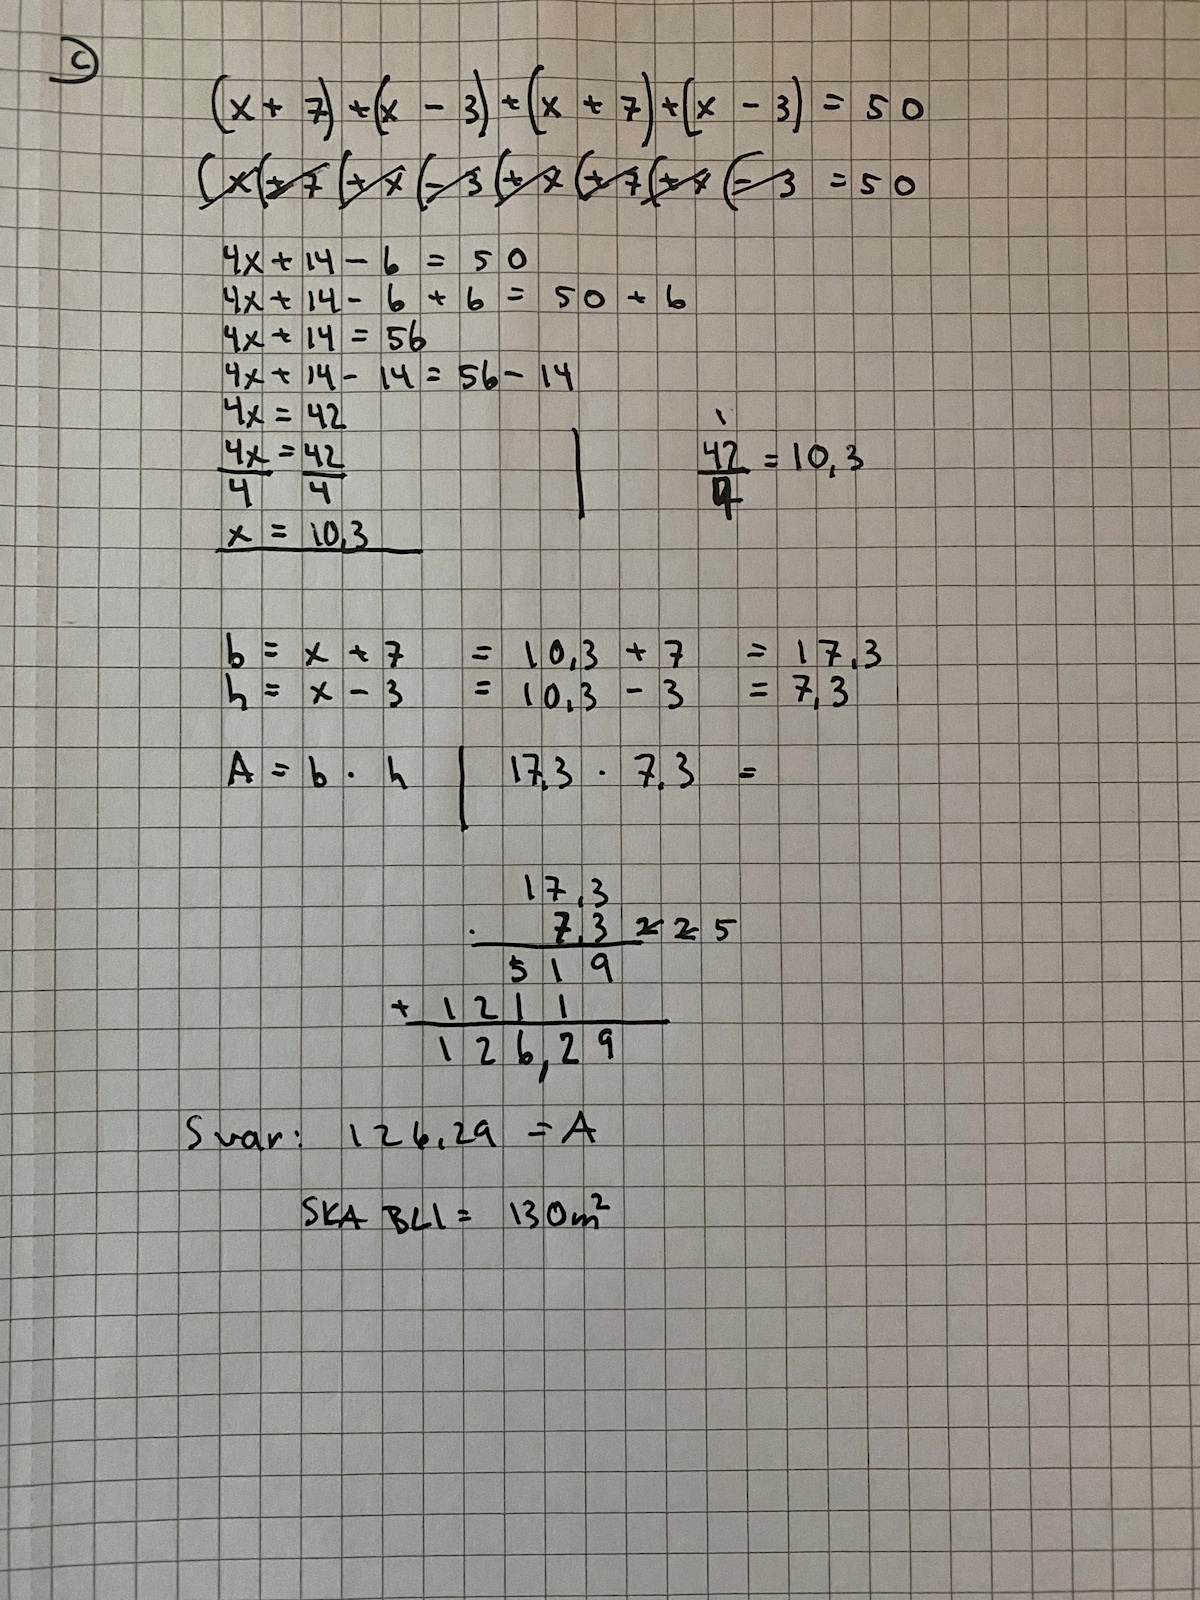 c)
(x + 7) + (x - 3) + (x + 7) + (x - 3) = 50
(x (+ 7 (+ x (- 3 (+ x (+ 7 (+ x (- 3 = 50
4x + 14 - 6 = 50
4x + 14 - 6 + 6 = 50 + 6
4x + 14 = 56
4x + 14 - 14 = 56 - 14
4x = 42
4x/4 = 42/4 | 42/4 = 10,3
x = 10,3
b = x + 7 = 10,3 + 7 = 17,3
h = x - 3 = 10,3 - 3 = 7,3
A = b · h | 17,3 · 7,3 =
17,3
· 7,3 2 2 5
519
+ 1211
126,29
Svar: 126,29 = A
SKA BLI = 130m²